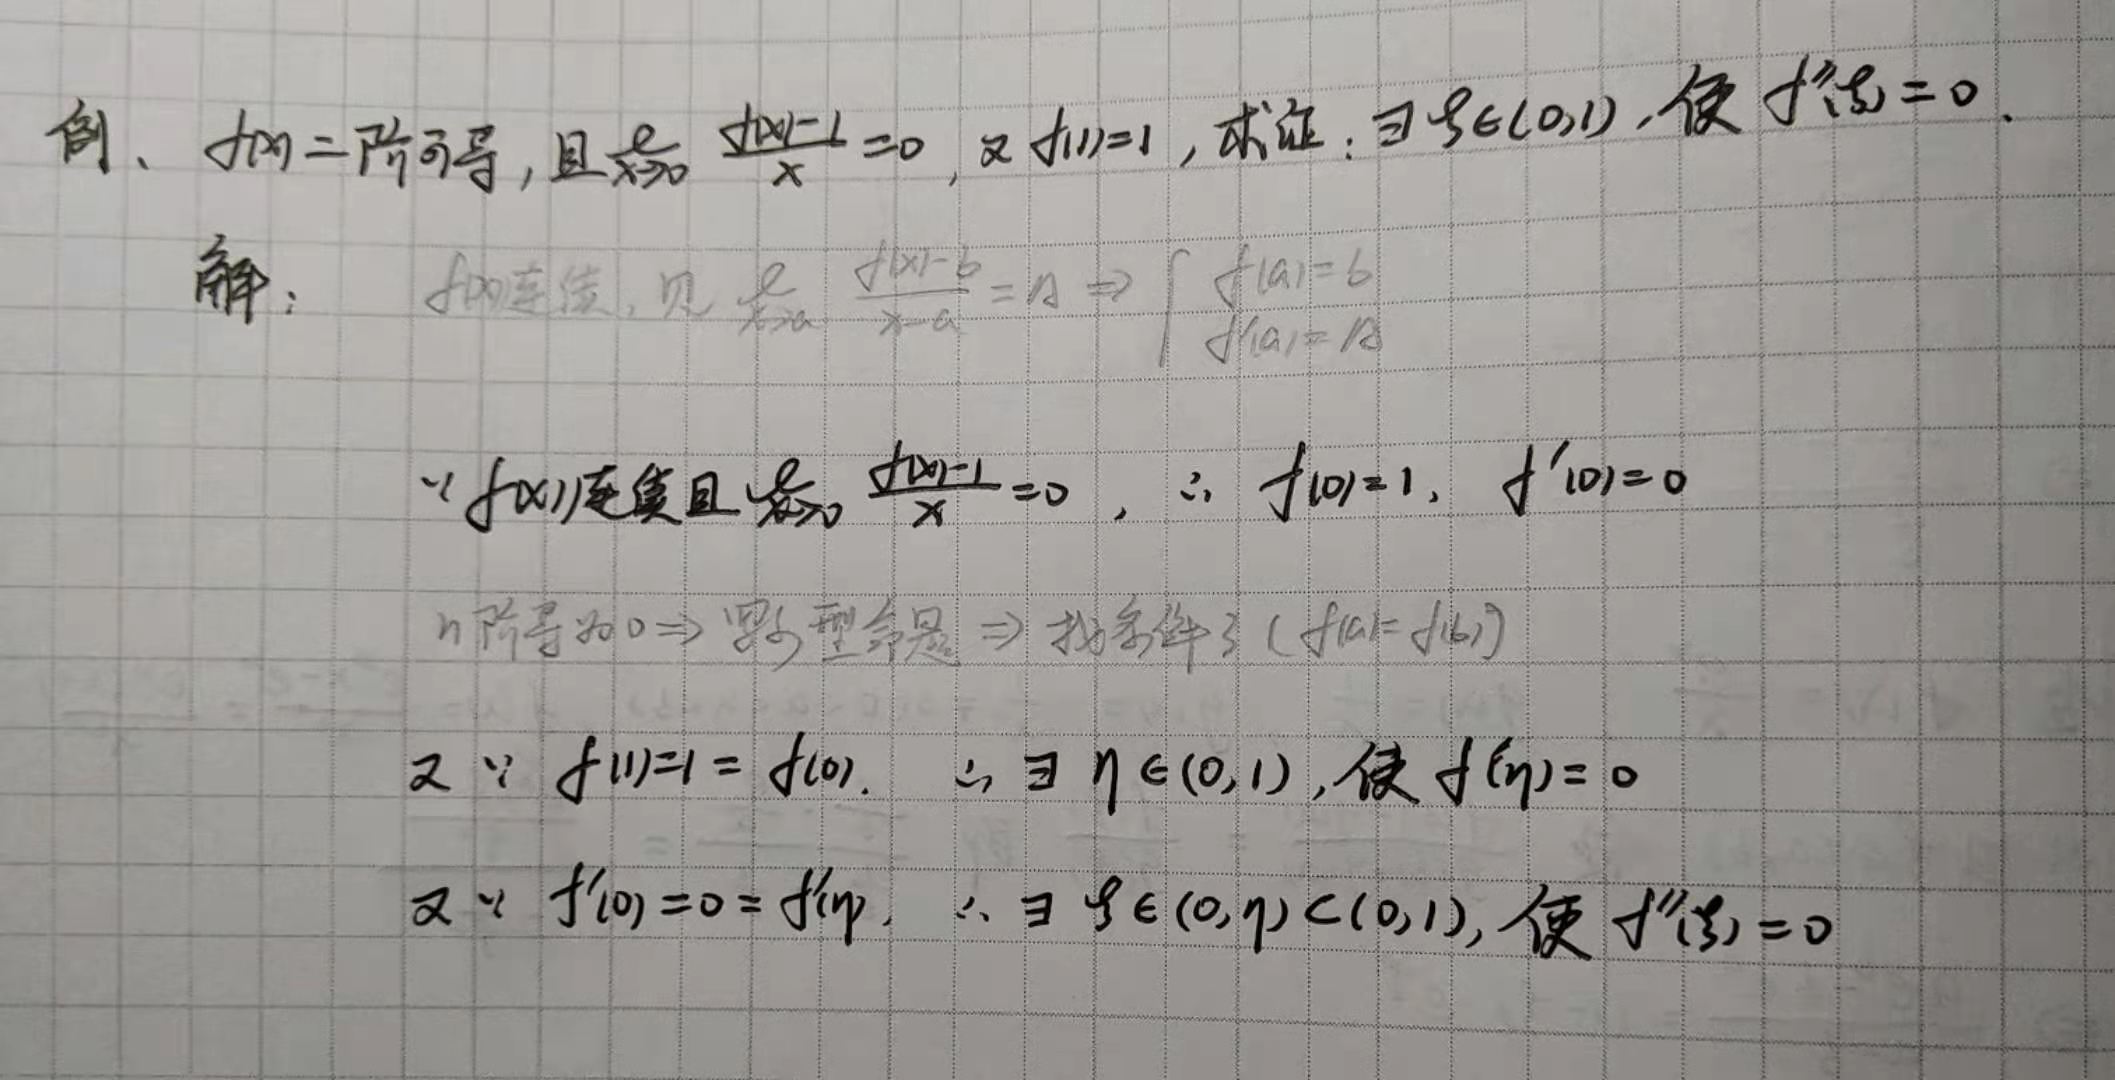 例、f(x)二阶可导,且 lim_{x→0} (f(x)-1)/x =0, 又 f(1)=1, 求证:∃ξ∈(0,1),使 f''(ξ)=0.
解: f(x)连续,见 lim_{x→a} (f(x)-b)/(x-a) = A ⇒ { f(a)=b
f'(a)=A
∵ f(x)连续且 lim_{x→0} (f(x)-1)/x =0, ∴ f(0)=1, f'(0)=0
n阶导为0⇒罗尔型命题⇒找条件3 (f(a)=f(b))
又∵ f(1)=1=f(0). ∴ ∃ η∈(0,1),使 f'(η)=0
又∵ f'(0)=0=f'(η), ∴ ∃ ξ∈(0,η)⊂(0,1),使 f''(ξ)=0